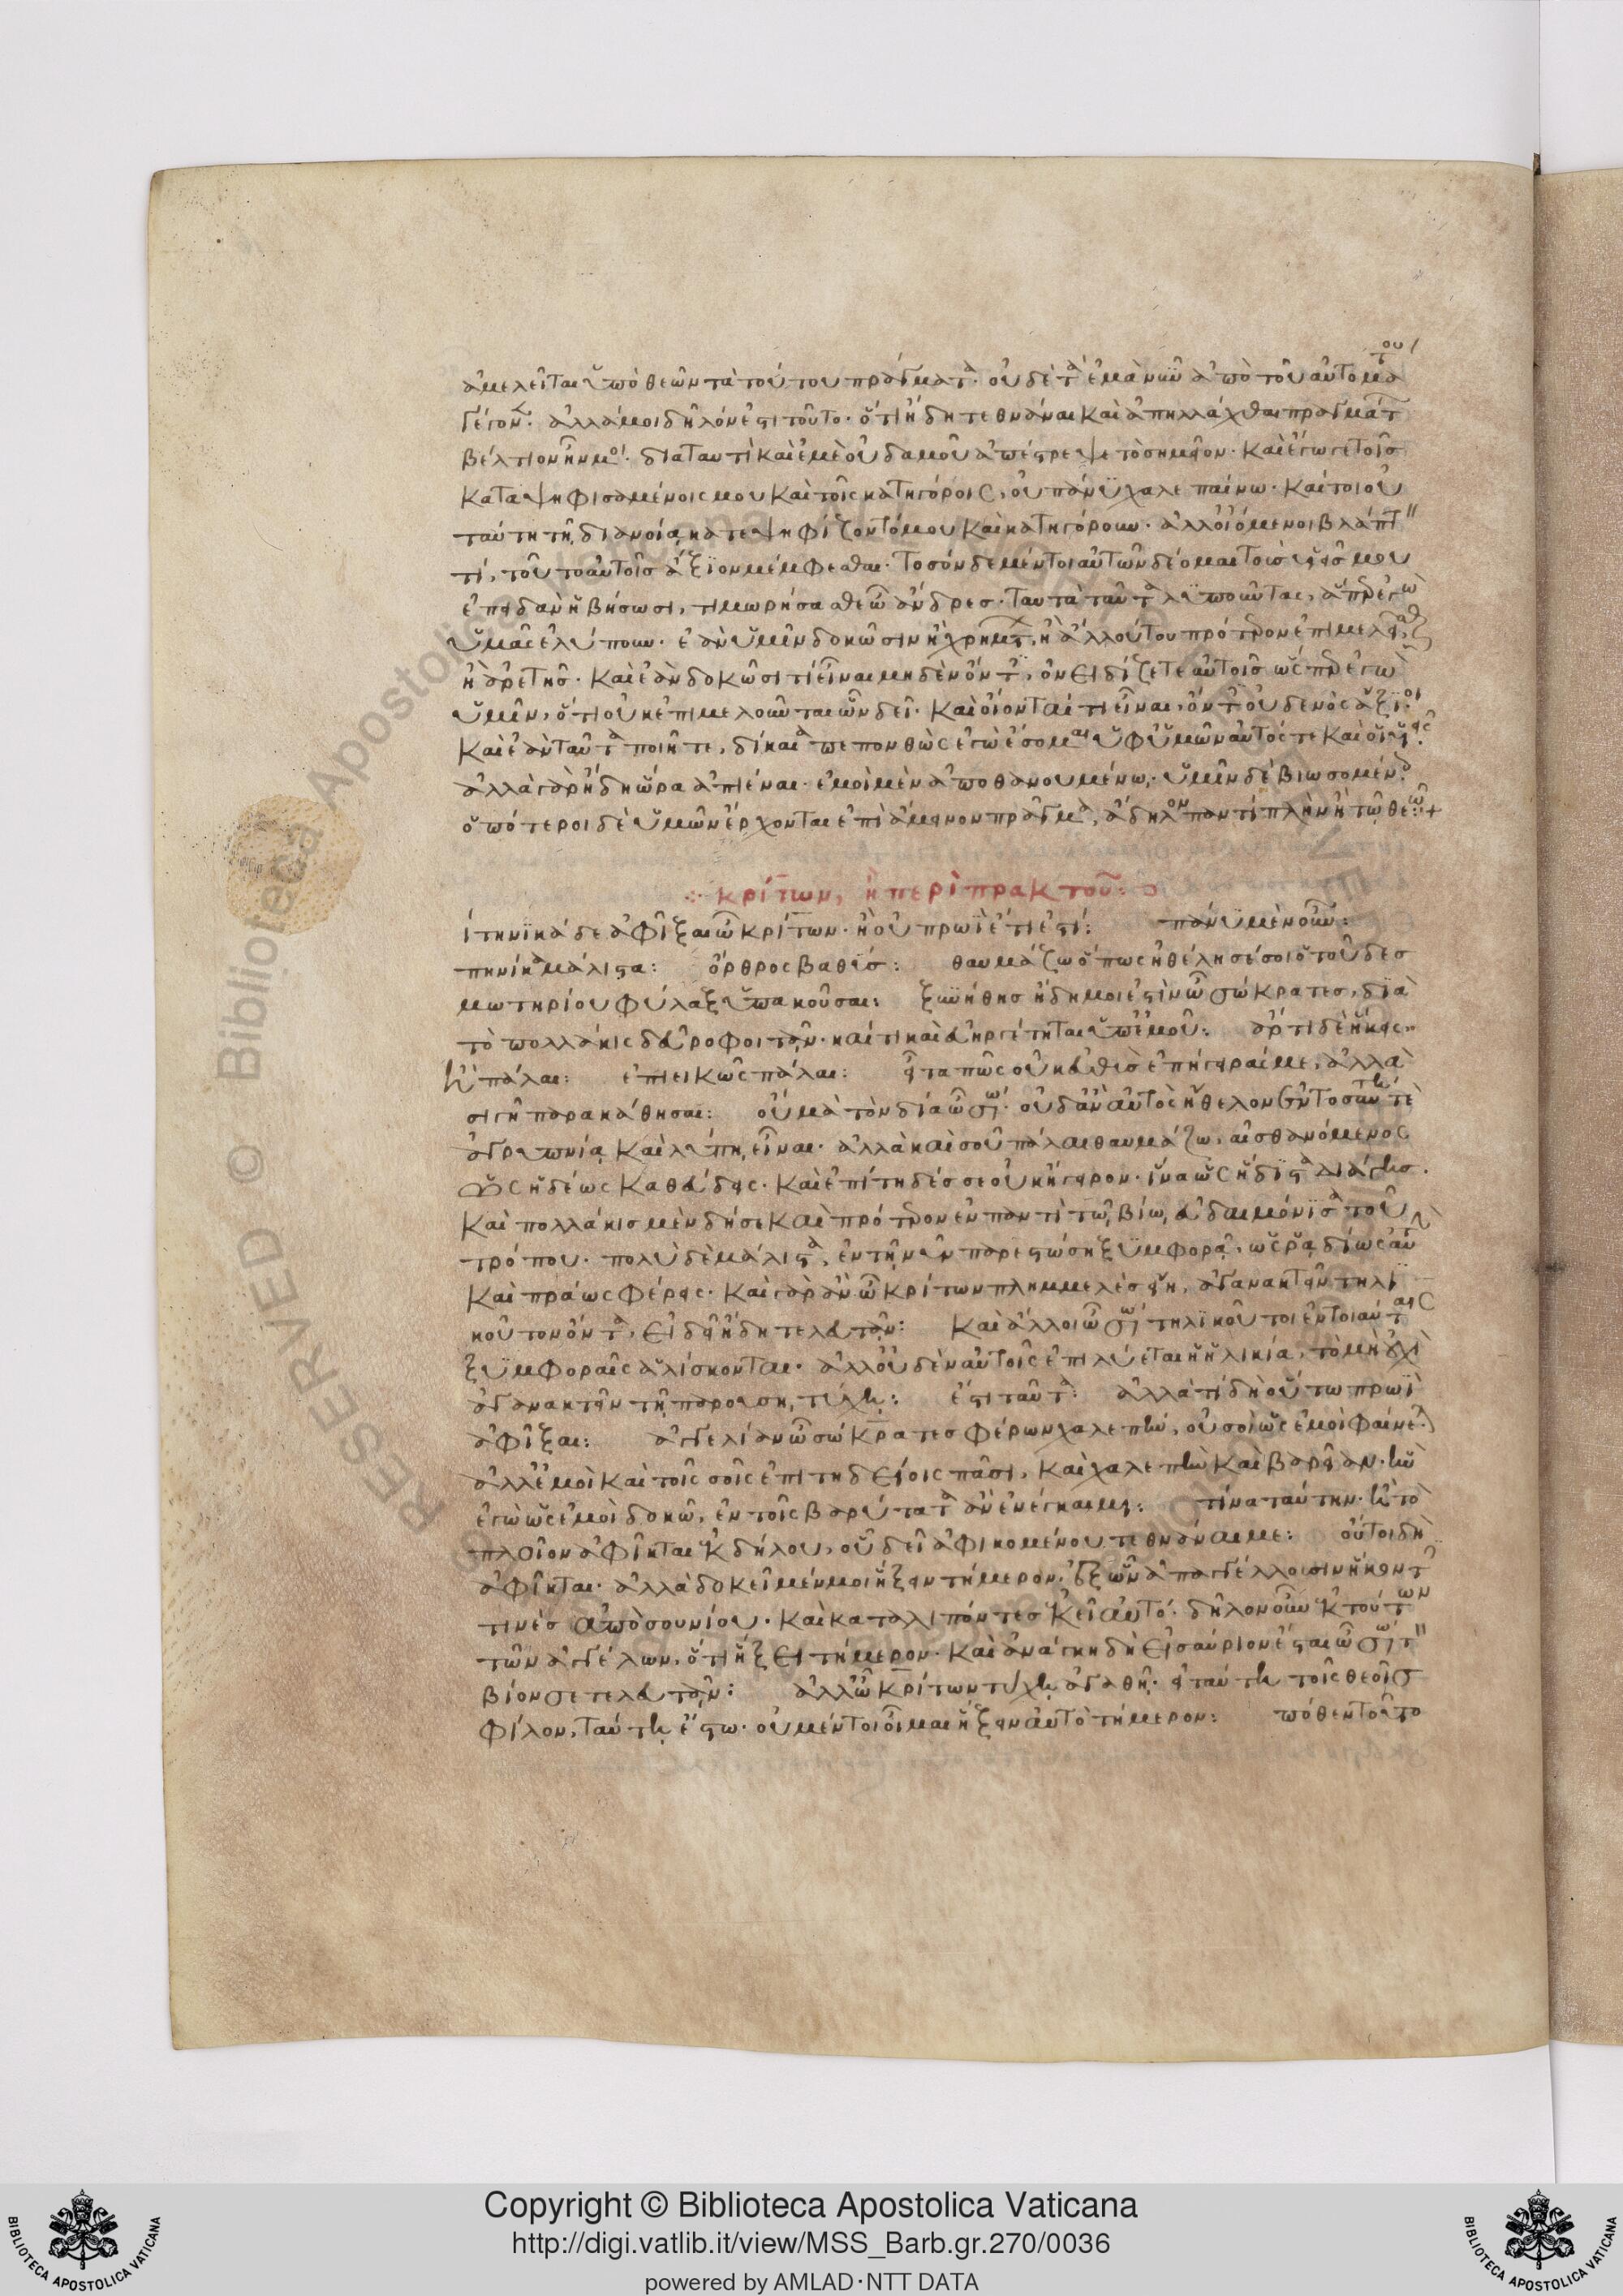 ἀμελεῖται ὑπὸ θεῶν τὰ τούτου πράγματα· οὐδὲ τὰ ἐμὰ νῦν ἀπὸ τοῦ αὐτομάτου
γέγονεν· ἀλλά μοι δῆλόν ἐστι τοῦτο· ὅτι ἤδη τεθνάναι καὶ ἀπηλλάχθαι πραγμάτων
βέλτιον ἦν μοι· διαταυτὶ καὶ ἐμὲ οὐδαμοῦ ἀπέτρεψε τὸ σημεῖον· καὶ ἔγωγε τοῖς
καταψηφισαμένοις μου καὶ τοῖς κατηγόροις, οὐ πάνυ χαλεπαίνω· καίτοι οὐ
ταύτῃ τῇ διανοίᾳ κατεψηφίζοντό μου καὶ κατηγόρουν· ἀλλ' οἰόμενοι βλάπτειν
τί, τοῦτο αὐτοῖς ἄξιον μέμφεσθαι· τοσόνδε μέντοι αὐτῶν δέομαι τοὺς υἱεῖς μου
ἐπειδὰν ἡβήσωσι, τιμωρήσασθε ὦ ἄνδρες· ταυτὰ ταῦτα λυποῦντας, ἅπερ ἐγὼ
ὑμᾶς ἐλύπουν· ἐὰν ὑμῖν δοκῶσιν ἢ χρημάτων, ἢ ἄλλού του πρότερον ἐπιμελεῖσθαι
ἢ ἀρετῆς· καὶ ἐὰν δοκῶσι τί εἶναι μηδὲν ὄντες, ὀνειδίζετε αὐτοῖς ὥσπερ ἐγὼ
ὑμῖν, ὅτι οὐκ ἐπιμελοῦνται ὧν δεῖ· καὶ οἴονταί τι εἶναι, ὄντες οὐδενὸς ἄξιοι
καὶ ἐὰν ταῦτα ποιῆτε, δίκαια πεπονθὼς ἐγὼ ἔσομαι ὑφ' ὑμῶν αὐτός τε καὶ οἱ υἱεῖς·
ἀλλὰ γὰρ ἤδη ὥρα ἀπιέναι· ἐμοὶ μὲν ἀποθανουμένῳ· ὑμῖν δὲ βιωσομένοις
ὁπότεροι δὲ ὑμῶν ἔρχονται ἐπὶ ἄμεινον πρᾶγμα, ἄδηλον παντὶ πλὴν ἢ τῷ θεῷ :+
κρίτων, ἢ περὶ πρακτοῦ:
τηνικάδε ἀφῖξαι ὦ κρίτων· ἢ οὐ πρωῒ ἔτι ἐστί: πάνυ μὲν οὖν:
πηνίκα μάλιστα: ὄρθρος βαθύς: θαυμάζω ὅπως ἠθέλησέ σοι ὁ τοῦ δεσ
μωτηρίου φύλαξ ὑπακοῦσαι: ξυνήθης ἤδη μοι ἐστὶν ὦ σώκρατες, διὰ
τὸ πολλάκις δεῦρο φοιτᾶν· καί τι καὶ εὐηργέτηται ὑπ' ἐμοῦ: ἄρτι δὲ ἥκεις
ἢ πάλαι: ἐπιεικῶς πάλαι: εἶτα πῶς οὐκ εὐθὺς ἐπήγειράς με, ἀλλὰ
σιγῇ παρακάθησαι: οὐ μὰ τὸν δία ὦ σώκρατες· οὐδ' ἂν αὐτὸς ἤθελον ἐν τοσαύτῃ τὲ
ἀγρυπνίᾳ καὶ λύπῃ εἶναι· ἀλλὰ καὶ σοῦ πάλαι θαυμάζω, αἰσθανόμενος
ὡς ἡδέως καθεύδεις· καὶ ἐπίτηδές σε οὐκ ἤγειρον· ἵνα ὡς ἥδιστα διάγῃς.
καὶ πολλάκις μὲν δή σε καὶ πρότερον ἐν παντὶ τῷ βίῳ εὐδαιμόνισα τοῦ
τρόπου· πολὺ δὲ μάλιστα, ἐν τῇ νῦν παρεστώσῃ ξυμφορᾷ, ὡς ῥᾳδίως αὐτὴν
καὶ πράως φέρεις· καὶ γὰρ ἂν ὦ κρίτων πλημμελὲς εἴη, ἀγανακτεῖν τηλι
κοῦτον ὄντα, εἰ δεῖ ἤδη τελευτᾶν: καὶ ἄλλοι ὦ σώκρατες τηλικοῦτοι ἐν τοιαύταις
ξυμφοραῖς ἁλίσκονται· ἀλλ' οὐδὲν αὐτοῖς ἐπιλύεται ἡ ἡλικία, τὸ μὴ οὐχὶ
ἀγανακτεῖν τῇ παρούσῃ τύχῃ: ἔστι ταῦτα: ἀλλὰ τί δὴ οὕτω πρωῒ
ἀφῖξαι: ἀγγελίαν ὦ σώκρατες φέρων χαλεπήν, οὐ σοὶ ὡς ἐμοὶ φαίνεται
ἀλλ' ἐμοὶ καὶ τοῖς σοῖς ἐπιτηδείοις πᾶσι, καὶ χαλεπὴν καὶ βαρεῖαν· ἣν
ἐγὼ ὡς ἐμοὶ δοκῶ, ἐν τοῖς βαρύτατα ἂν ἐνέγκαιμι: τίνα ταύτην· ἢ τὸ
πλοῖον ἀφῖκται ἐκ δήλου, οὗ δεῖ ἀφικομένου τεθνάναι με: οὔτοι δὴ
ἀφῖκται· ἀλλὰ δοκεῖ μέν μοι ἥξειν τήμερον, ἐξ ὧν ἀπαγγέλλουσιν ἥκοντες
τινὲς ἀπὸ σουνίου· καὶ καταλιπόντες ἐκεῖ αὐτό· δῆλον οὖν ἐκ τούτων
τῶν ἀγγέλων, ὅτι ἥξει τήμερον· καὶ ἀνάγκη δὴ εἰσαύριον ἔσται ὦ σώκρατες τὸν
βίον σε τελευτᾶν: ἀλλ' ὦ κρίτων τύχῃ ἀγαθῇ· εἰ ταύτῃ τοῖς θεοῖς
φίλον, ταύτῃ ἔστω· οὐ μέντοι οἶμαι ἥξειν αὐτὸ τήμερον: πόθεν τοῦτο
Copyright © Biblioteca Apostolica Vaticana
http://digi.vatlib.it/view/MSS_Barb.gr.270/0036
powered by AMLAD·NTT DATA